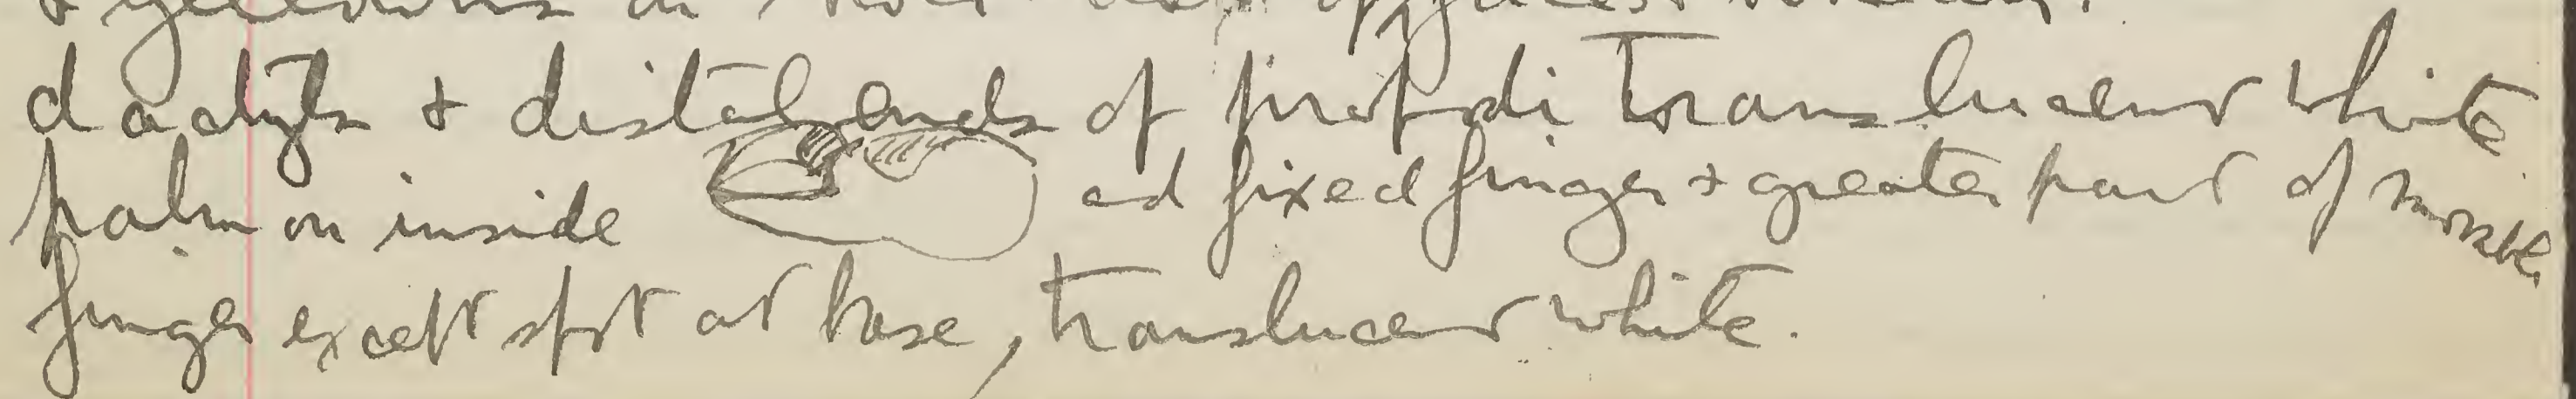 dactyls & distal ends of propodi translucent white
palm on inside and fixed finger & greater part of movable
finger except spot at base, translucent white.